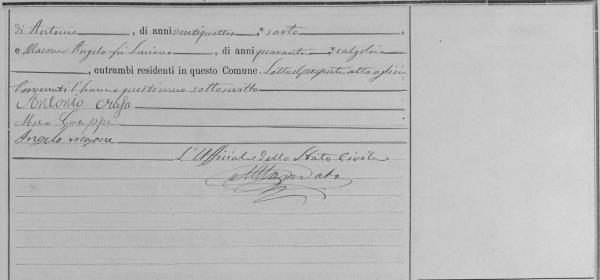 di Antonio, di anni ventiquattro, sarto,
e Masone Angelo fu Luciano, di anni quaranta, calzolaio
, entrambi residenti in questo Comune. Letto il presente atto agli in
tervenuti l'hanno questi meco sottoscritto
Antonio
Giuseppe
Angelo masone
L'Ufficiale dello Stato Civile